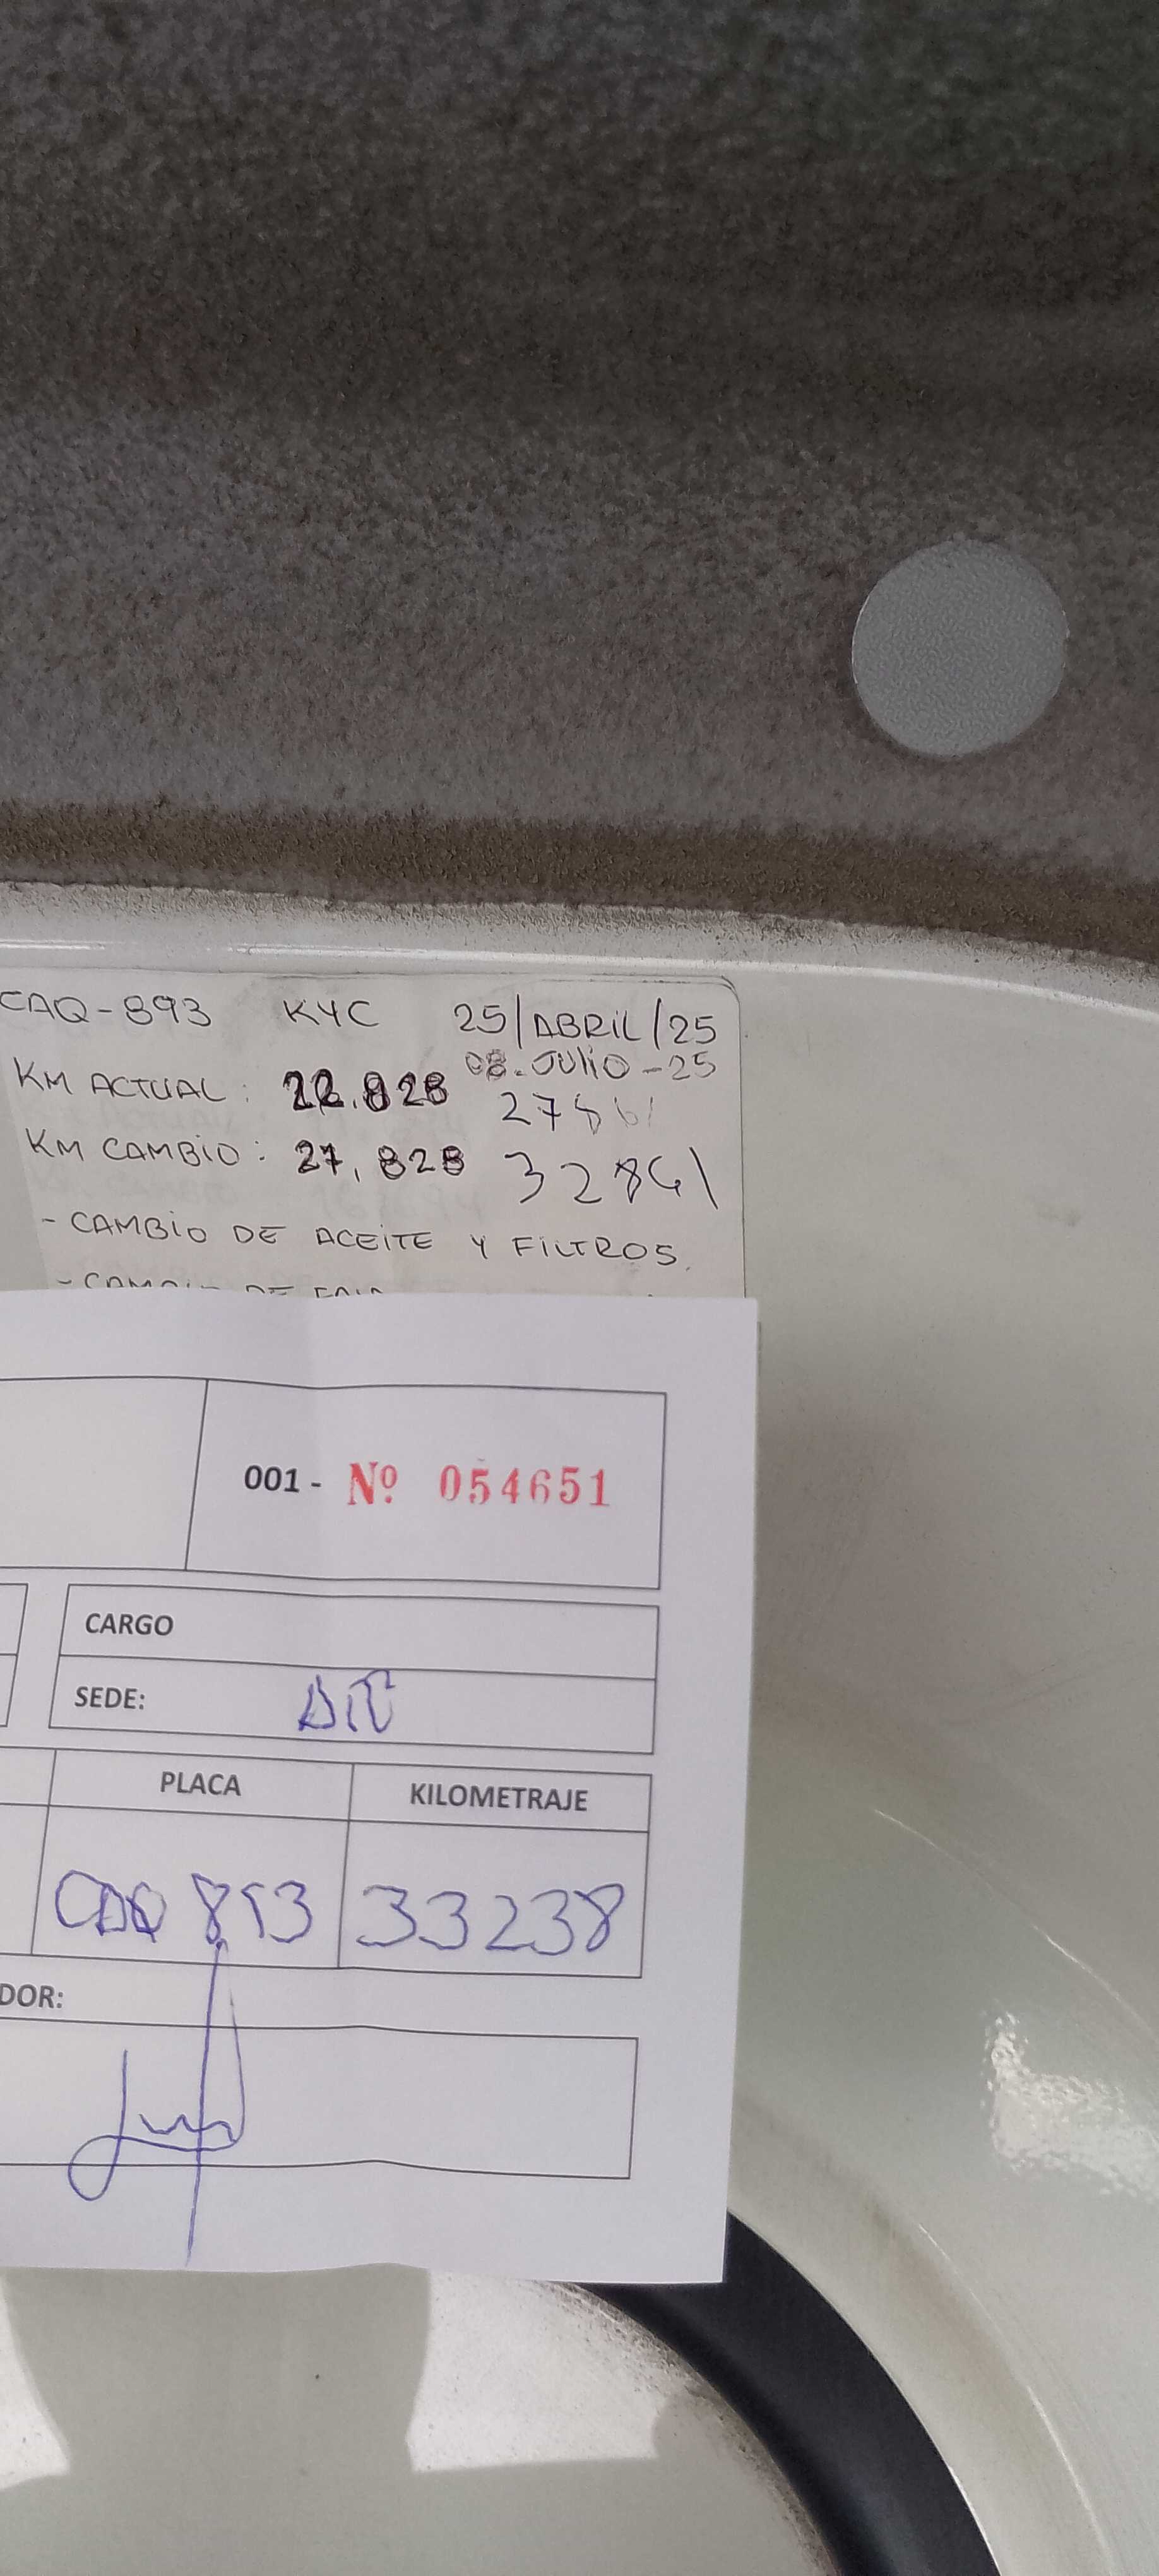 CAQ-893 KYC 25/ABRIL/25
08.JULIO-25
KM ACTUAL: 22.828 27861
KM CAMBIO: 27,828 32861
- CAMBIO DE ACEITE Y FILTROS.
- CAMBIO DE
001 - Nº 054651
CARGO
SEDE:
PLACA KILOMETRAJE
CAQ 893 33238
DOR: